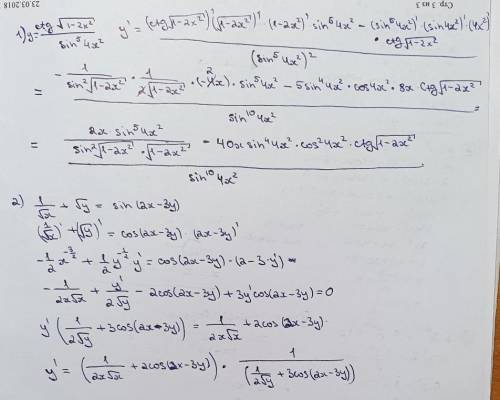 Стр 1 из 3
23.03.2018
1) y = ctg√(1-2x²) / sin⁵4x²   y' = ((ctg√(1-2x²))' (√(1-2x²))' · (1-2x²)' sin⁵4x² - (sin⁵4x²)' (sin4x²)' (4x²)' · ctg√(1-2x²)) / (sin⁵4x²)² =
= (-1/(sin²√(1-2x²)) · 1/(2√(1-2x²)) · (-4x) · sin⁵4x² - 5sin⁴4x² · cos4x² · 8x ctg√(1-2x²)) / sin¹⁰4x² =
= (2x sin⁵4x² / (sin²√(1-2x²) · √(1-2x²)) - 40x sin⁴4x² · cos²4x² · ctg√(1-2x²)) / sin¹⁰4x²
2) 1/√x + √y = sin(2x-3y)
(1/√x)' + (√y)' = cos(2x-3y) · (2x-3y)'
-1/2 x^(-3/2) + 1/2 y^(-1/2) y' = cos(2x-3y) · (2-3·y')
-1/(2x√x) + y'/(2√y) - 2cos(2x-3y) + 3y'cos(2x-3y) = 0
y' (1/(2√y) + 3cos(2x-3y)) = 1/(2x√x) + 2cos(2x-3y)
y' = (1/(2x√x) + 2cos(2x-3y)) · 1/(1/(2√y) + 3cos(2x-3y))